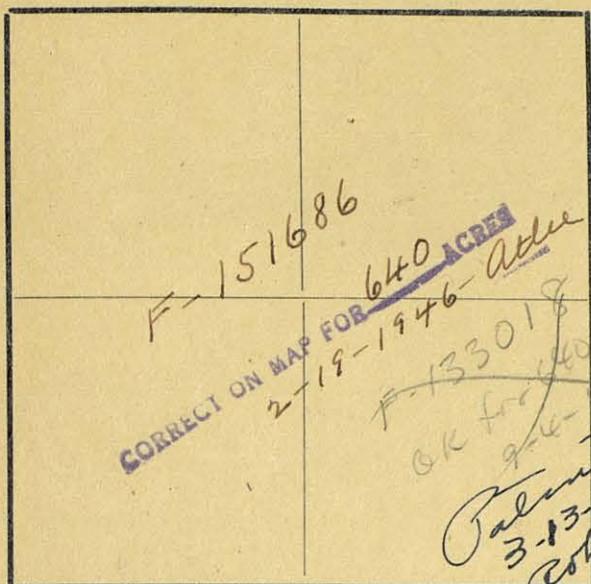 F-151686
CORRECT ON MAP FOR 640 ACRES
2-19-1946-
F-133018
OK for 640
9-4-
3-13-